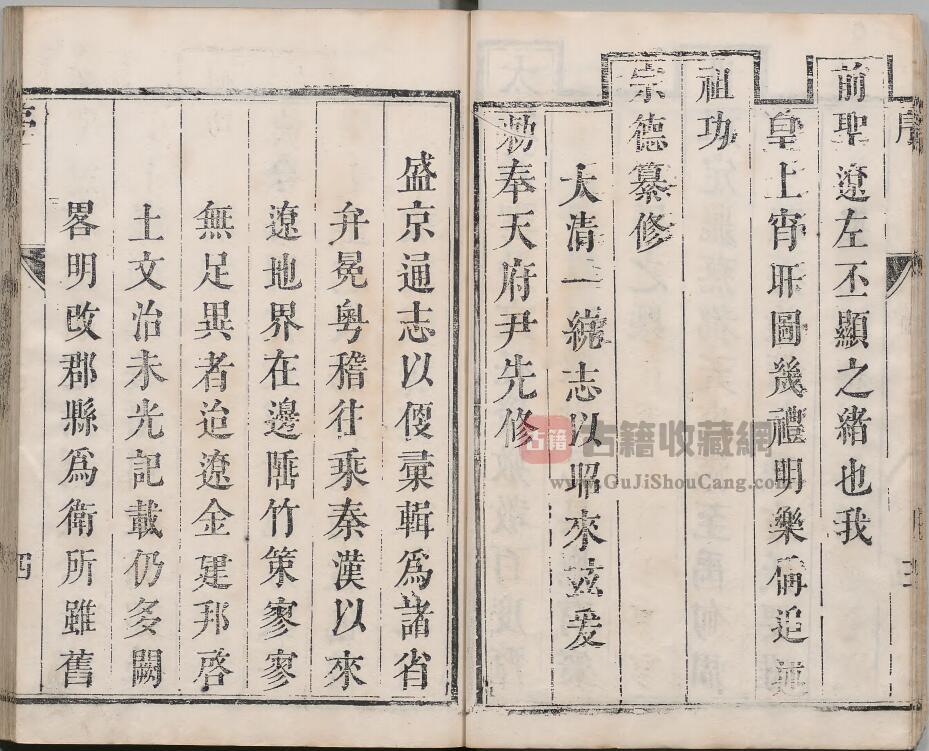 前聖遼左丕顯之緒也我
皇上宵旰圖幾禮明樂備追
祖功
宗德纂修
大清一統志以昭來茲爰
勑奉天府尹先修
盛京通志以便彙輯為諸省
弁冕粵稽往乘秦漢以來
遼地界在邊陲竹策寥寥
無足異者迨遼金建邦啓
土文治未光記載仍多闕
畧明改郡縣爲衛所雖舊
序
四
古籍
古籍收藏網
www.GuJiShouCang.com